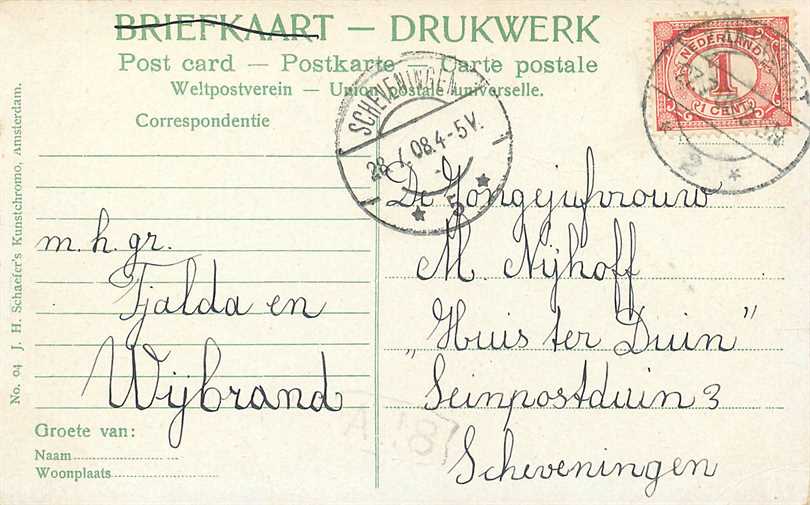 BRIEFKAART — DRUKWERK
Post card — Postkarte — Carte postale
Weltpostverein — Union postale universelle.
Correspondentie
No. 04 J. H. Schaefer's Kunstchromo, Amsterdam.
m. h. gr.
Tjalda en
Wijbrand
Groete van:
Naam
Woonplaats
SCHEVENINGEN
28. 7. 08. 4-5V.
5
NEDERLAND
1
1 CENT
2
De Jongejufvrouw
M. Nijhoff
„Huis ter Duin”
Seinpostduin 3
Scheveningen